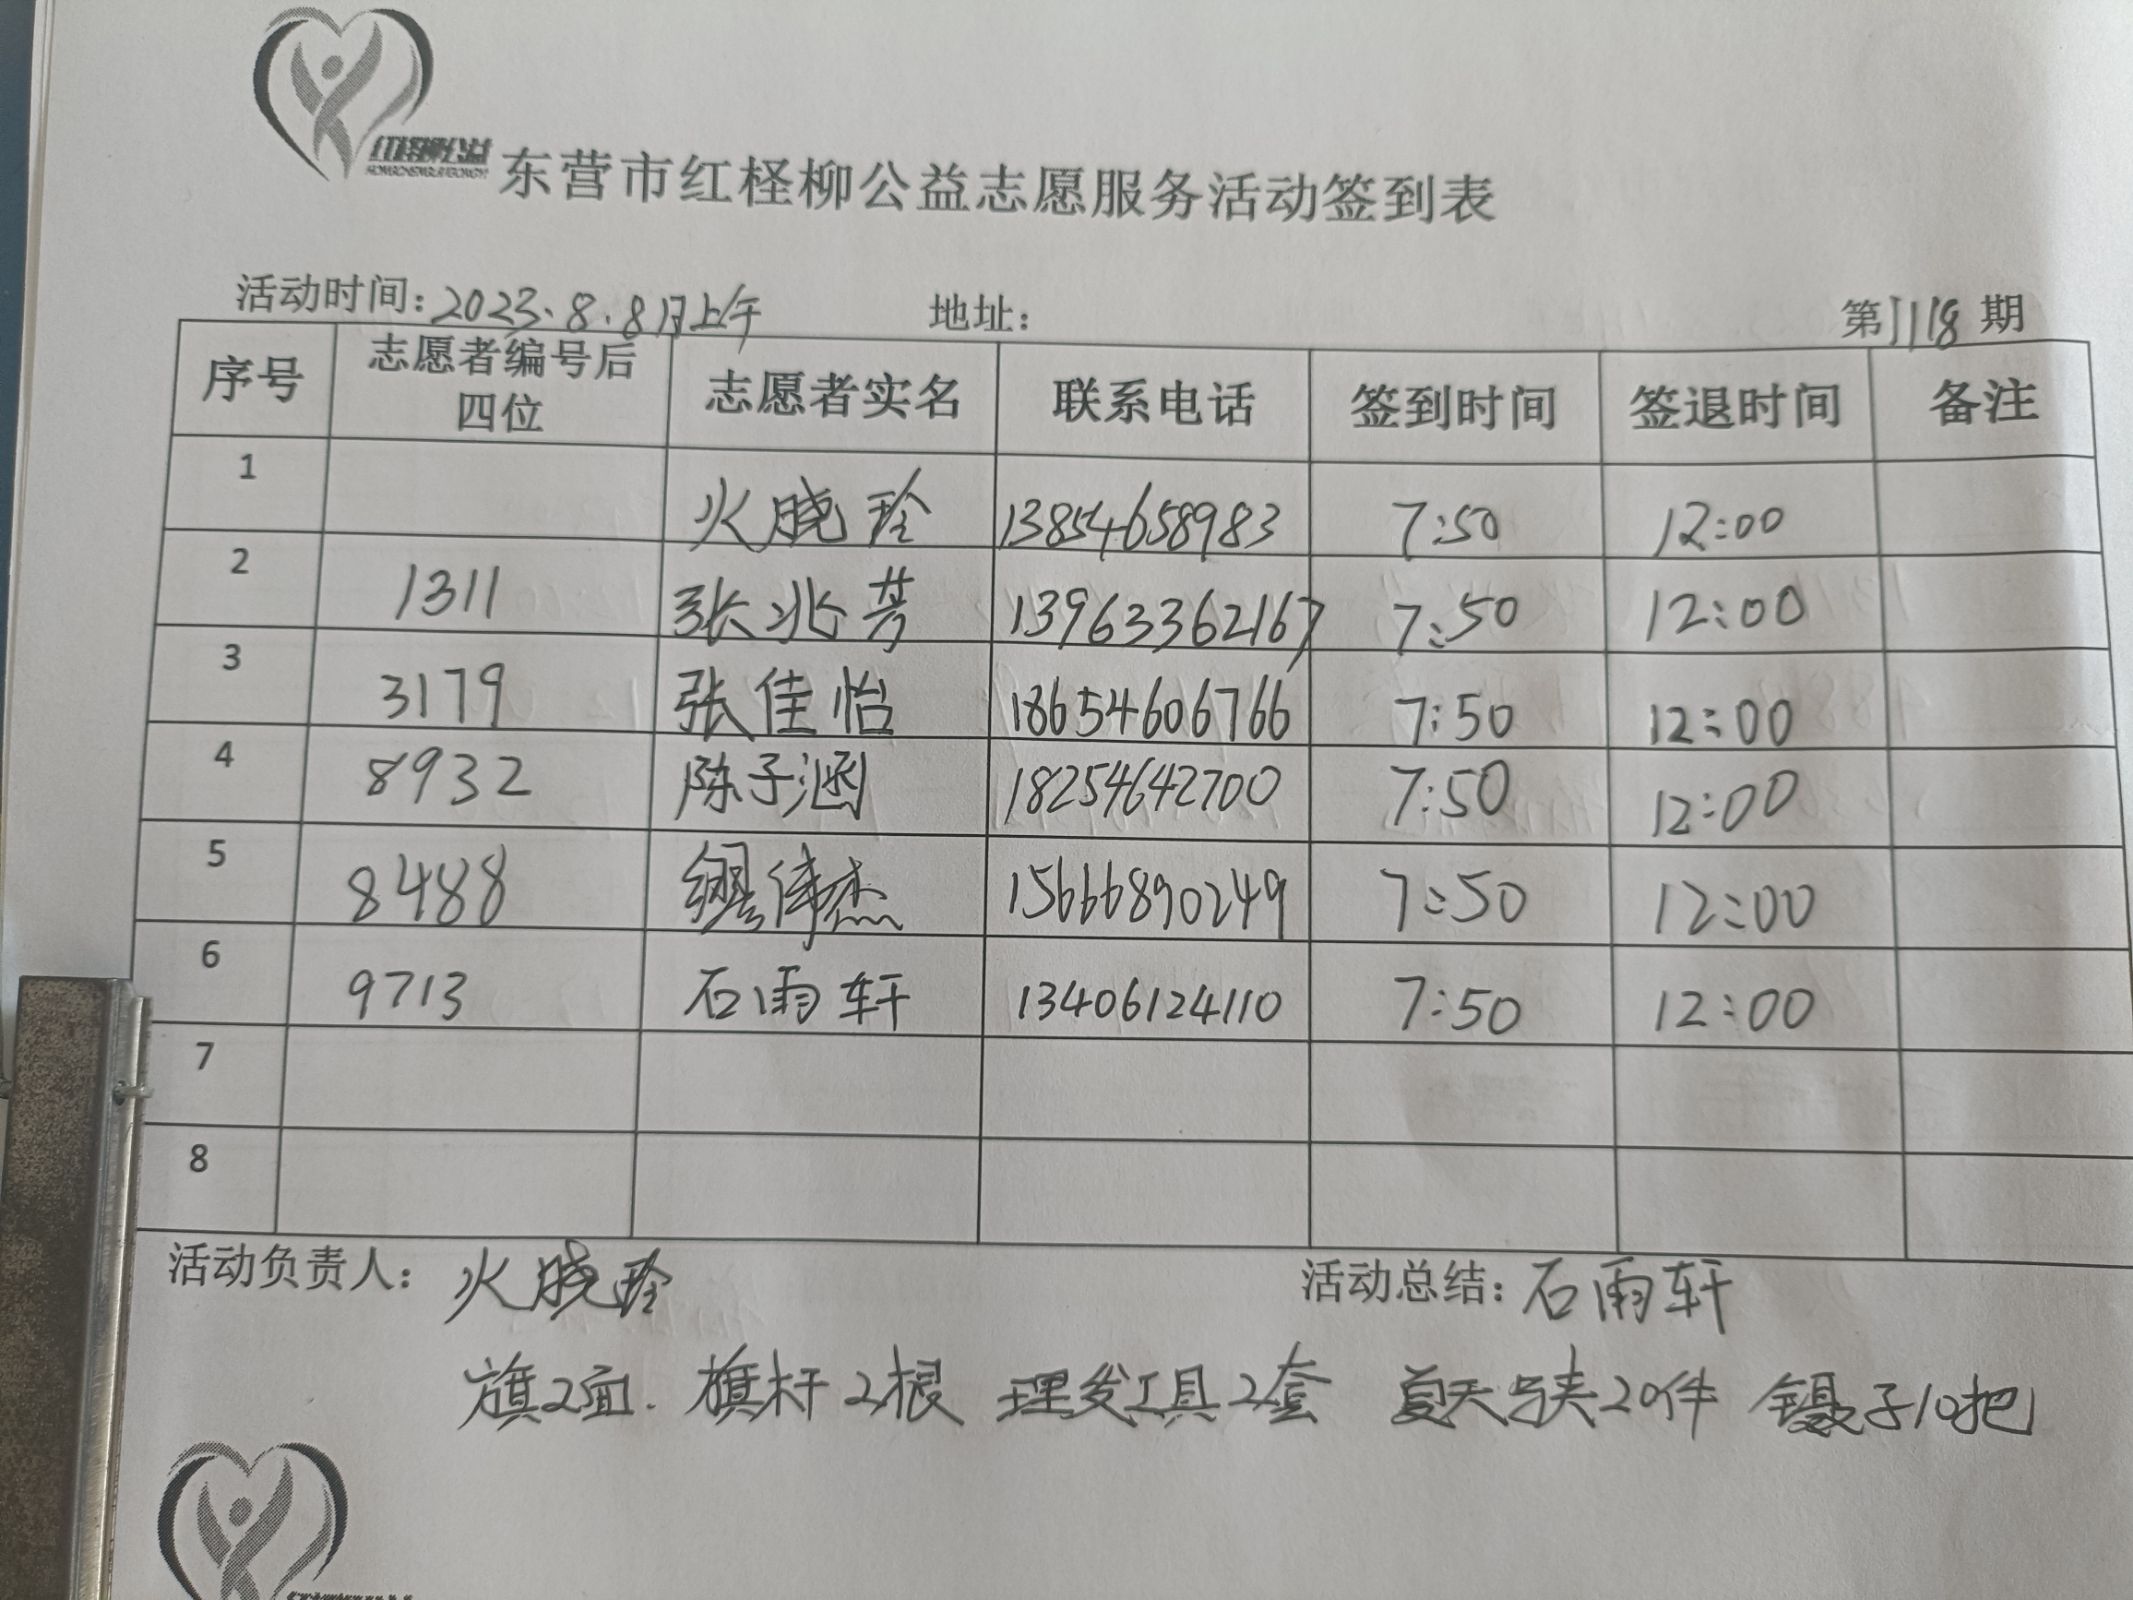 红柽柳公益
东营市红柽柳公益志愿服务活动签到表
活动时间:2023.8.8日上午 地址: 第1118期
序号 志愿者编号后四位 志愿者实名 联系电话 签到时间 签退时间 备注
1 火晓玲 13854658983 7:50 12:00
2 1311 张兆芳 13963362167 7:50 12:00
3 3179 张佳怡 18654606766 7:50 12:00
4 8932 陈子涵 18254642700 7:50 12:00
5 8488 伟杰 15666890249 7:50 12:00
6 9713 石雨轩 13406124110 7:50 12:00
7
8
活动负责人: 火晓玲 活动总结: 石雨轩
旗2面. 旗杆2根 理发工具2套 夏天马夹20件 镊子10把